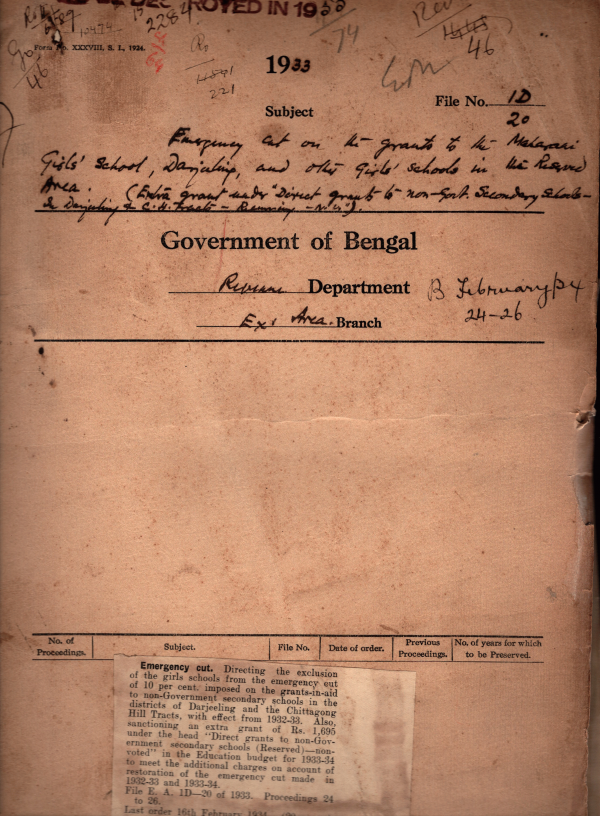 ROYED IN 19
Form No. XXXVIII, S. I., 1924.
46
221
74
46
1933
File No. 1D
20
Subject
Emergency cut on the grants to the Maharani
Girls' School, Darjeeling, and other Girls' schools in the Reserved
Area. (Extra grant under "Direct grants to non-Govt. Secondary Schools-
In Darjeeling & C. H. Tracts -
Government of Bengal
Revenue Department
B February/34
24-26
Area. Branch
No. of Proceedings.
Subject.
File No.
Date of order.
Previous Proceedings.
No. of years for which to be Preserved.
Emergency cut. Directing the exclusion
of the girls schools from the emergency cut
of 10 per cent. imposed on the grants-in-aid
to non-Government secondary schools in the
districts of Darjeeling and the Chittagong
Hill Tracts, with effect from 1932-33. Also,
sanctioning an extra grant of Rs. 1,695
under the head "Direct grants to non-Gov-
ernment secondary schools (Reserved)—non-
voted" in the Education budget for 1933-34
to meet the additional charges on account of
restoration of the emergency cut made in
1932-33 and 1933-34.
File E. A. 1D—20 of 1933. Proceedings 24
to 26.
Last order 16th February 1934